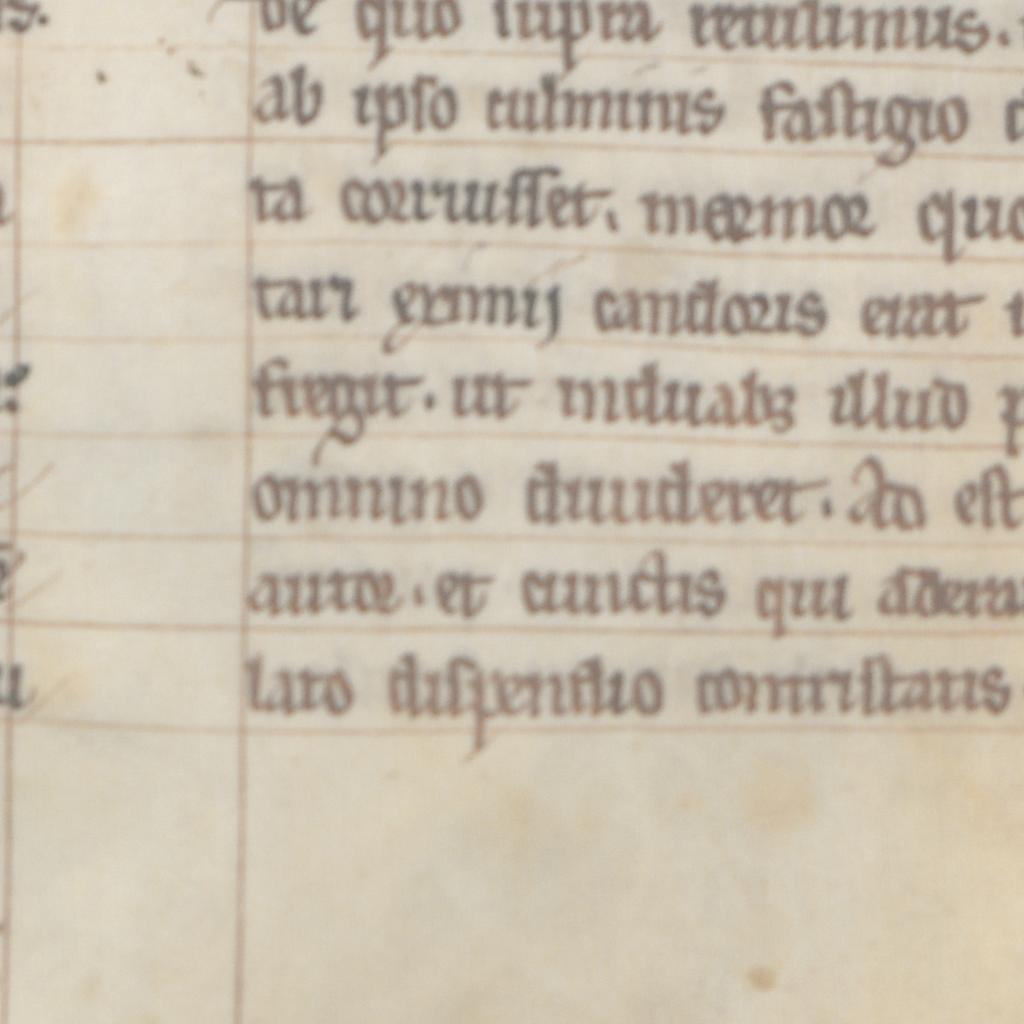 de quo supra retulimus.
ab ipso culminis fastigio
ta corruisset. marmor quo
tari eximij candoris erat
fregit. ut in duabus illud
omnino diuideret. Ad est
autor. et cunctis qui
lato dispendio contristatis